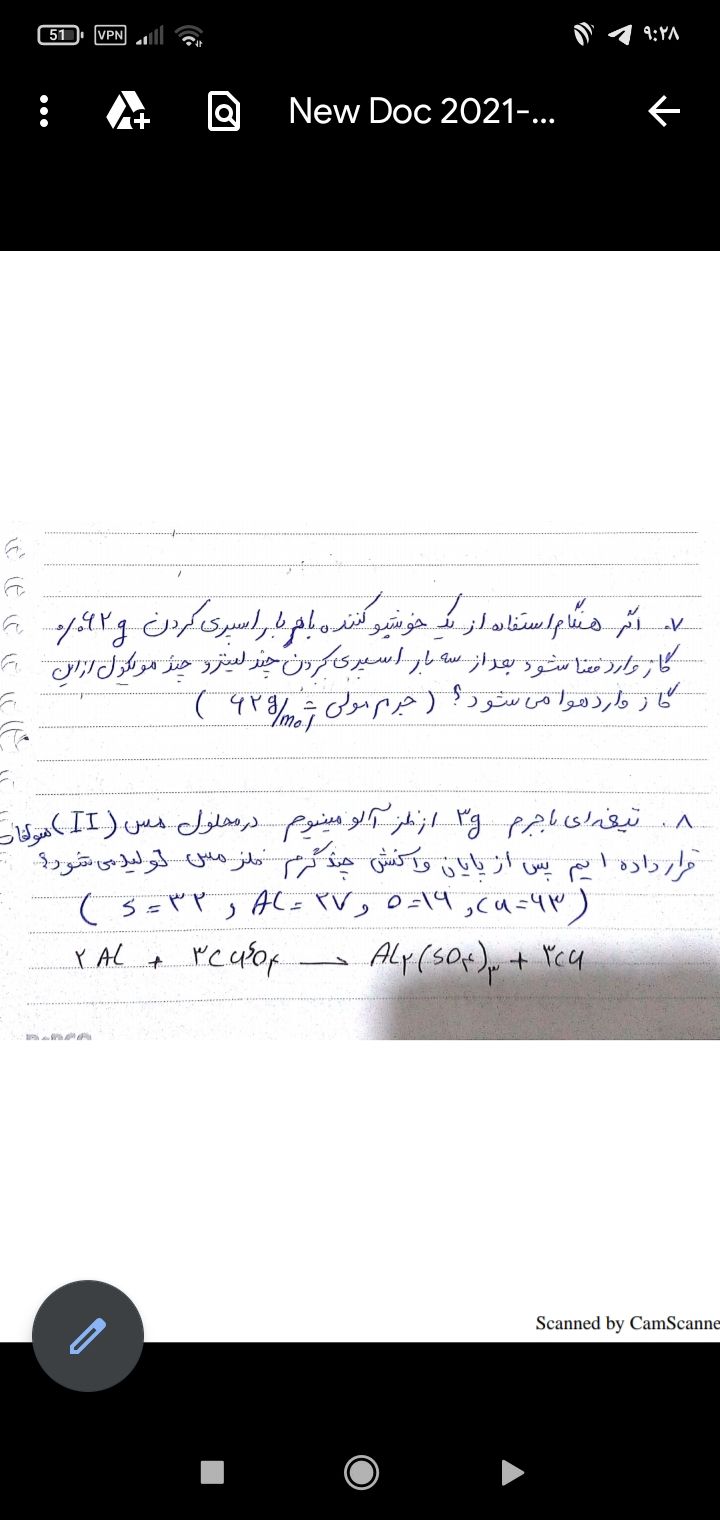 51 VPN ۹:۲۸
New Doc 2021-...
۷. اگر هنگام استفاده از یک خوشبو کننده با هر بار اسپری کردن ۰/۶۲g
گاز وارد فضا شود بعد از سه بار اسپری کردن چند لیتر و چند مولکول از این
گاز وارد هوا می شود؟ ( جرم مولی = ۶۲ g/mol )
۸. تیغه ای با جرم ۳g از فلز آلومینیوم در محلول مس (II) سولفات
قرار داده ایم پس از پایان واکنش چند گرم فلز مس تولید می شود؟
( S=۳۲ و Al=۲۷ و O=۱۶ و Cu=۶۴ )
۲Al + ۳CuSO۴ → Al۲(SO۴)۳ + ۳Cu
Scanned by CamScanne